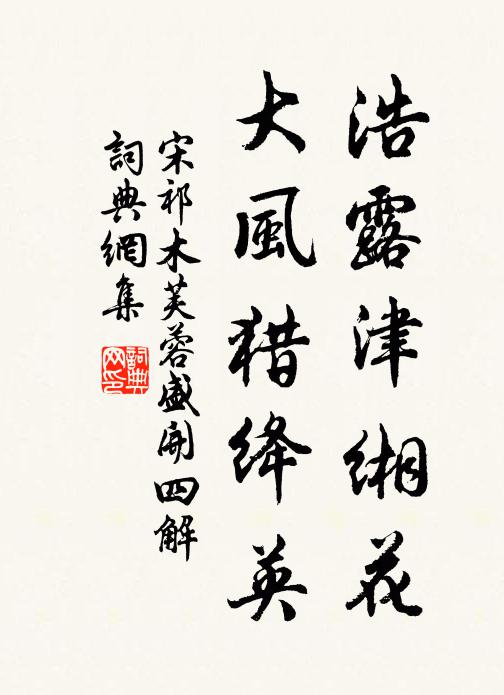 浩露津缃花
大風猎绛英
宋祁木芙蓉盛開四解
詞典網集
詞典網印